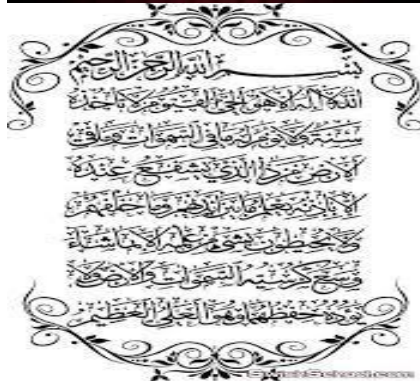 بسم الله الرحمن الرحيم
الله لا إله إلا هو الحي القيوم لا تأخذه
سنة ولا نوم له ما في السموات وما في
الأرض من ذا الذي يشفع عنده
إلا بإذنه يعلم ما بين أيديهم وما خلفهم
ولا يحيطون بشيء من علمه إلا بما شاء
وسع كرسيه السموات والأرض ولا
يؤوده حفظهما وهو العلي العظيم